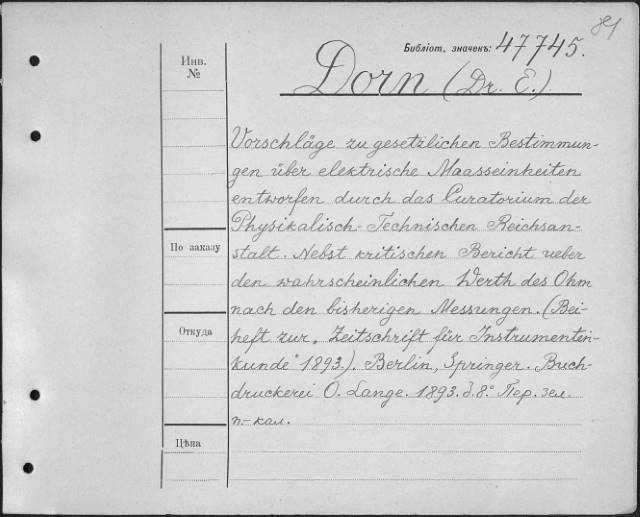 81
Библіот. значекъ: 47745.
Инв.
№
Dorn (Dr. E.).
Vorschläge zu gesetzlichen Bestimmun-
gen über elektrische Maasseinheiten
entworfen durch das Curatorium der
Physikalisch-Technischen Reichsan-
По заказу
stalt. Nebst kritischen Bericht ueber
den wahrscheinlichen Werth des Ohm
nach den bisherigen Messungen. (Bei-
Откуда
heft zur „Zeitschrift für Instrumenten-
kunde" 1893.). Berlin, Springer. Buch-
druckerei O. Lange. 1893. 8.° Пер. зел.
п.-кал.
Цѣна